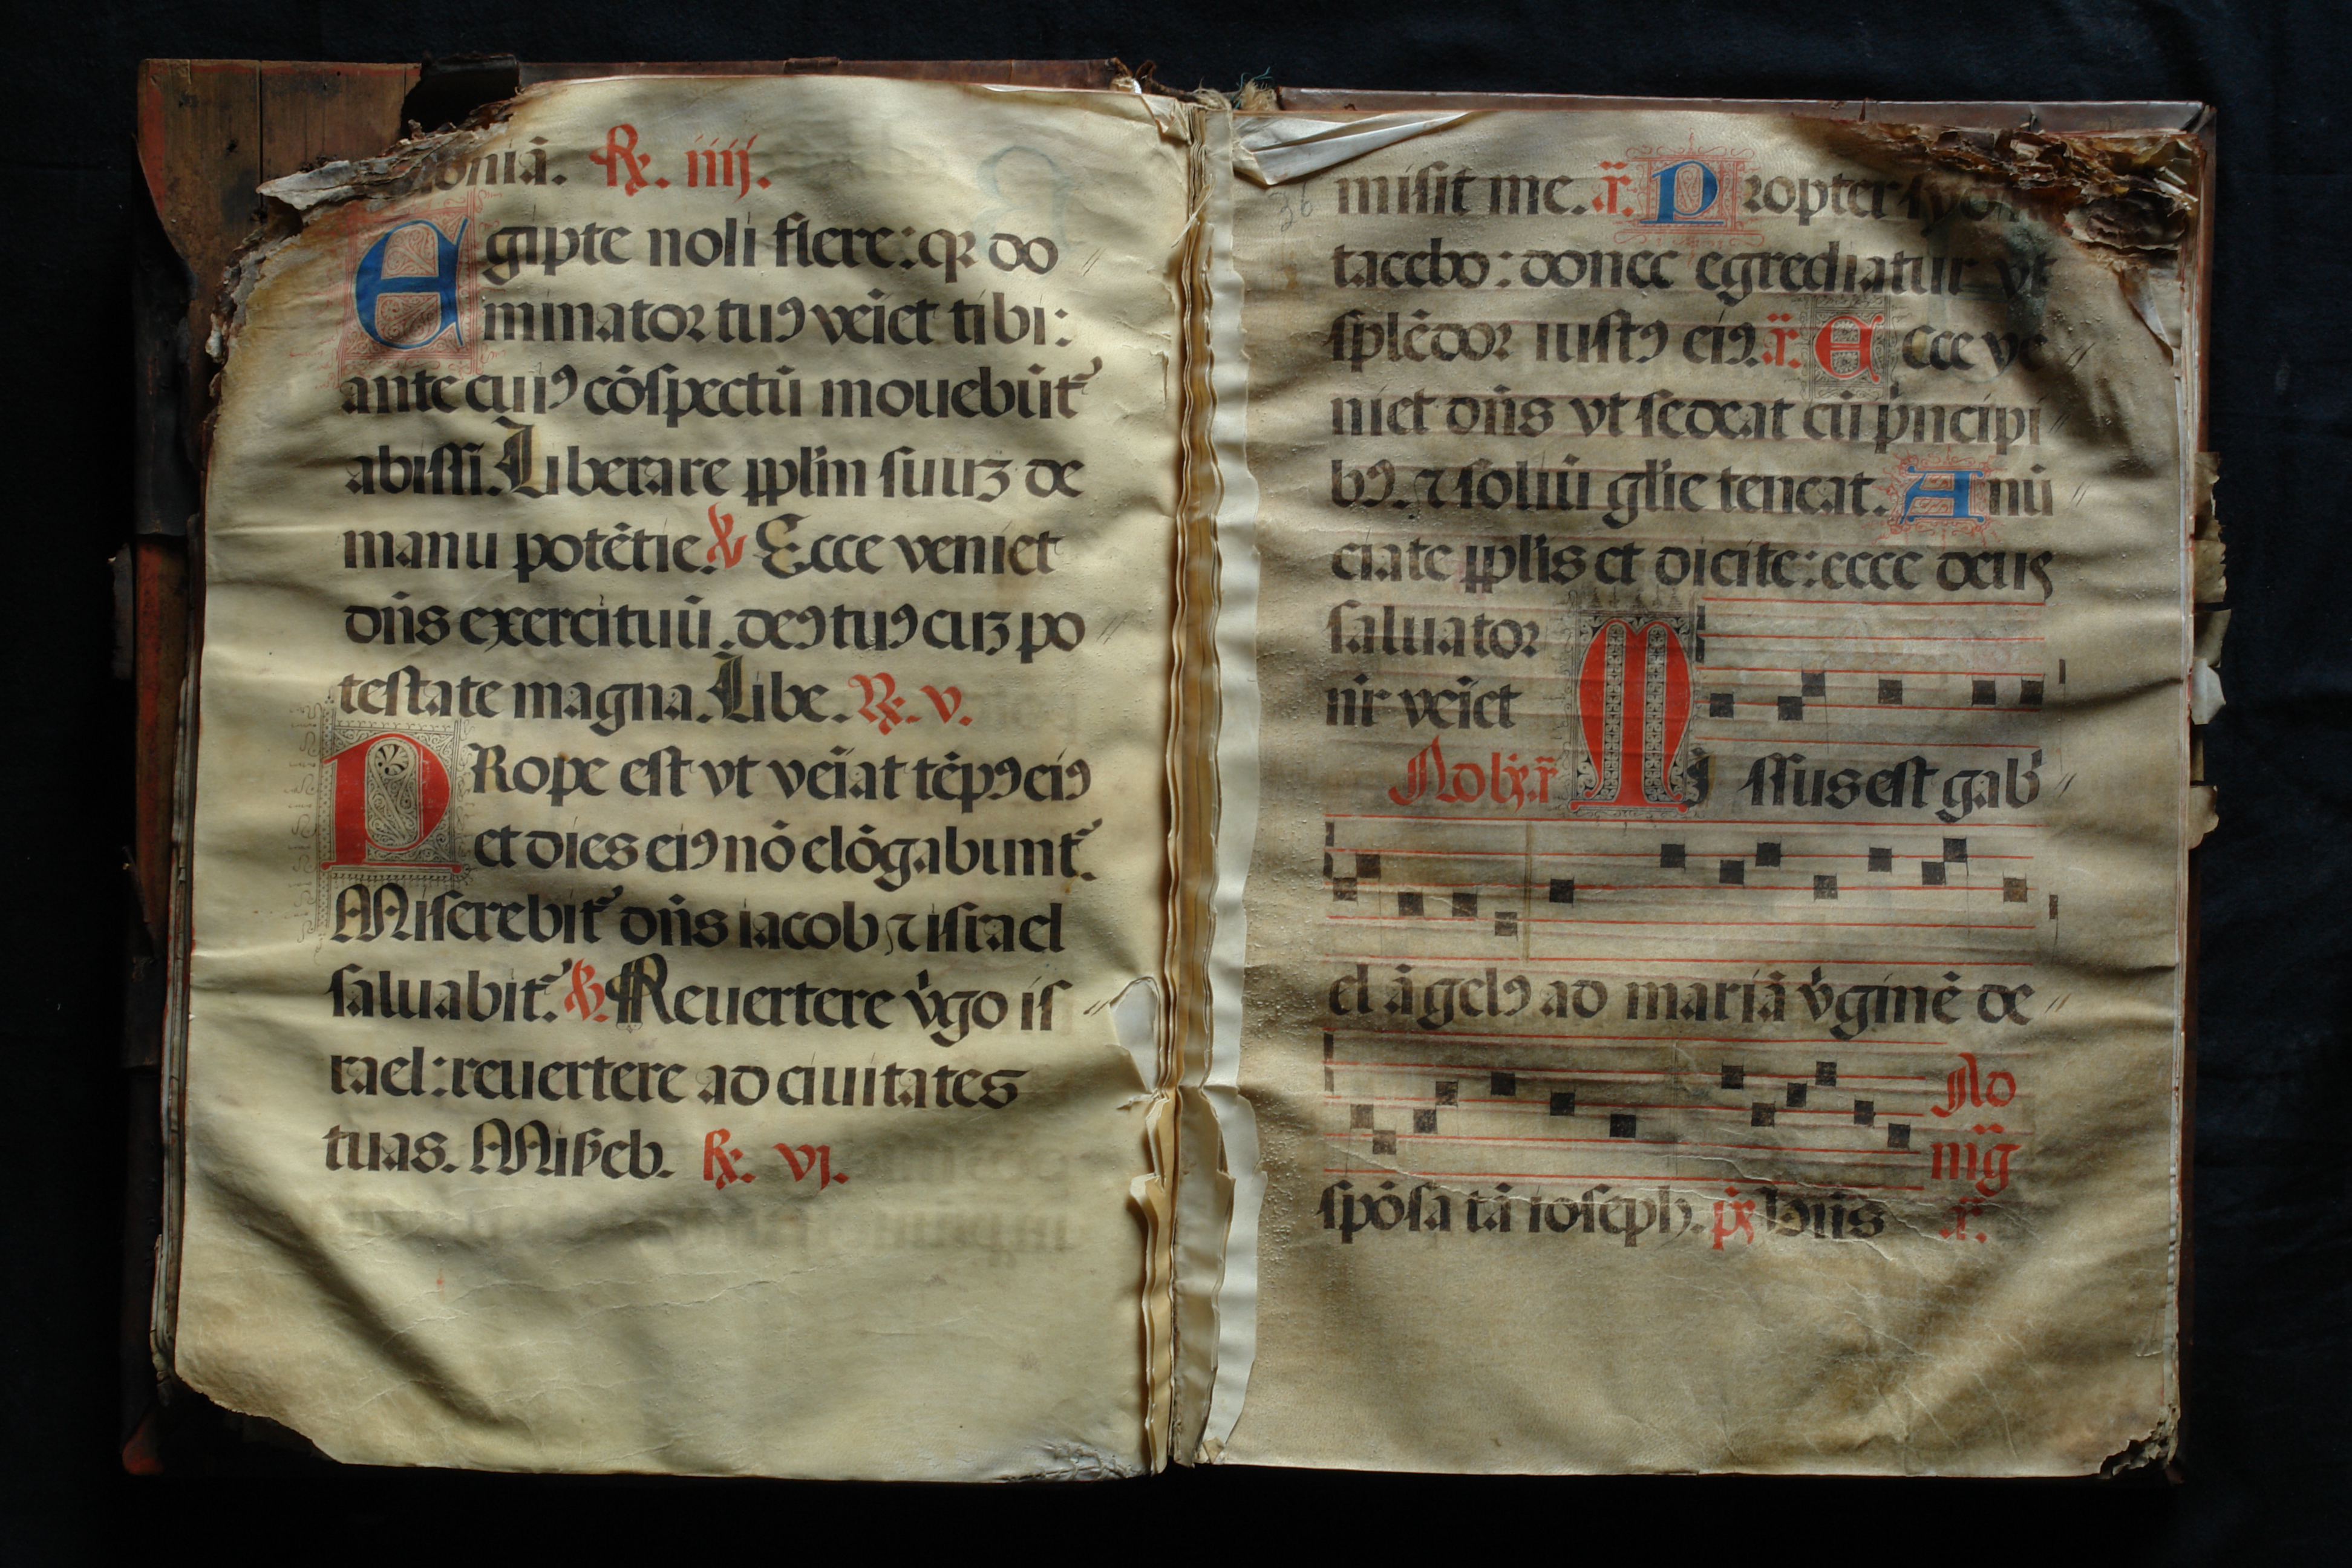 oniā. R. iiij.
Egipte noli flere: qꝛ do
minator tuꝰ veĩet tibi:
ante cuiꝰ cōspectū mouebūt᷑
abissi. Liberare pplm̃ suuꝫ de
manu potētie. ℣ Ecce veniet
dn̄s exercituū. deꝰ tuꝰ cuꝫ po
testate magna. Libe. R. v.
PRope est vt veĩat tēpꝰ eiꝰ
et dies eiꝰ nō elōgabunt᷑.
Miserebit᷑ dn̄s iacob ⁊ israel
saluabit᷑. ℣. Reuertere v̓go is
rael: reuertere ad ciuitates
tuas. Miẜeb. R. vj.
36
misit me. ã. Propter syon
tacebo: donec egrediatur vt
splēdor iustꝰ eiꝰ. ã. Ecce ve
niet dn̄s vt sedeat cū p̓ncipi
bꝰ. ⁊ soliū glĩe teneat. Anū
ciate pplĩs et dicite: ecce deus
saluator
nr̃ veĩet
MIssus est gab̓
el āgelꝰ ad mariā v̓ginē de
spōsatā ioseph. dn̄s